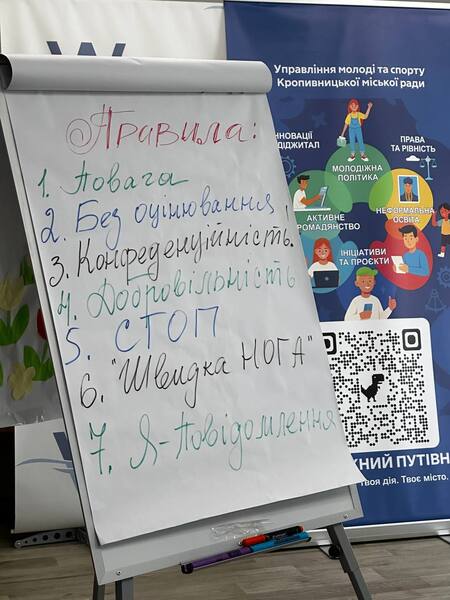 Правила:
1. Повага
2. Без оцінювання
3. Конфеденційність.
4. Добровільність
5. СТОП
6. "Швидка НОГА"
7. Я-Повідомлення
Управління молоді та спорту
Кропивницької міської ради
ПРАВА
ТА РІВНІСТЬ
МОЛОДІЖНА
ПОЛІТИКА
АКТИВНЕ
НЕФОРМАЛЬНА
ОСВІТА
ІНІЦІАТИВИ
ТА ПРОЄКТИ
Твоя дія. Твоє місто.